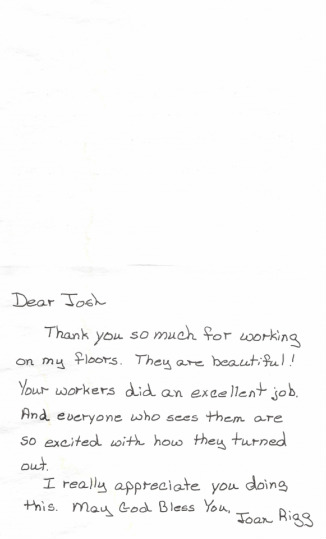 Dear Josh
Thank you so much for working
on my floors. They are beautiful!
Your workers did an excellent job.
And everyone who sees them are
so excited with how they turned
out.
I really appreciate you doing
this. May God Bless You,
Joan Rigg